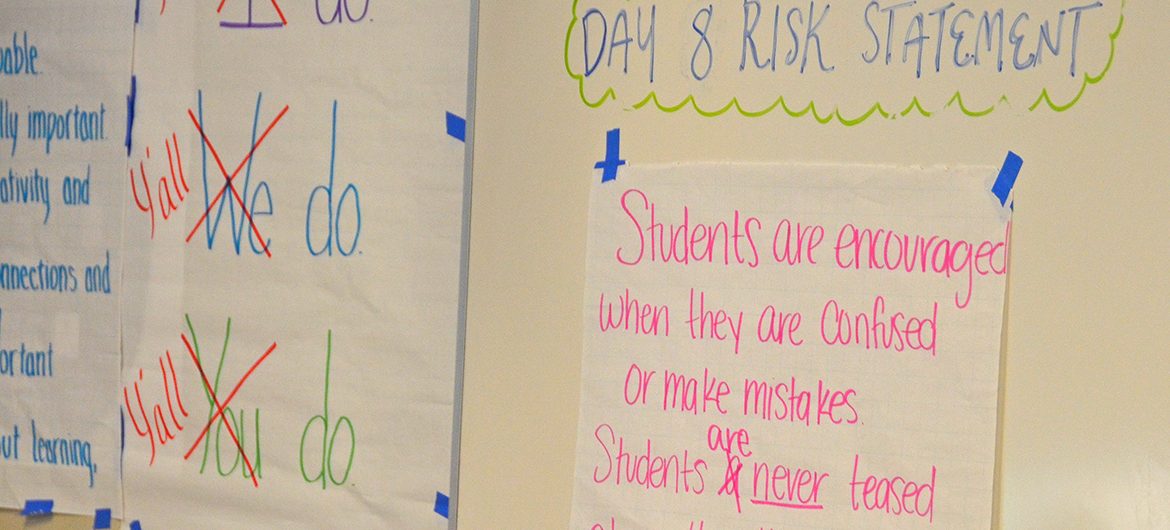 able.
lly important
ativity and
nnections and
ortant
ut learning,
I do.
Y'all We do.
Y'all You do.
DAY 8 RISK STATEMENT
Students are encouraged
when they are confused
or make mistakes.
are
Students never teased